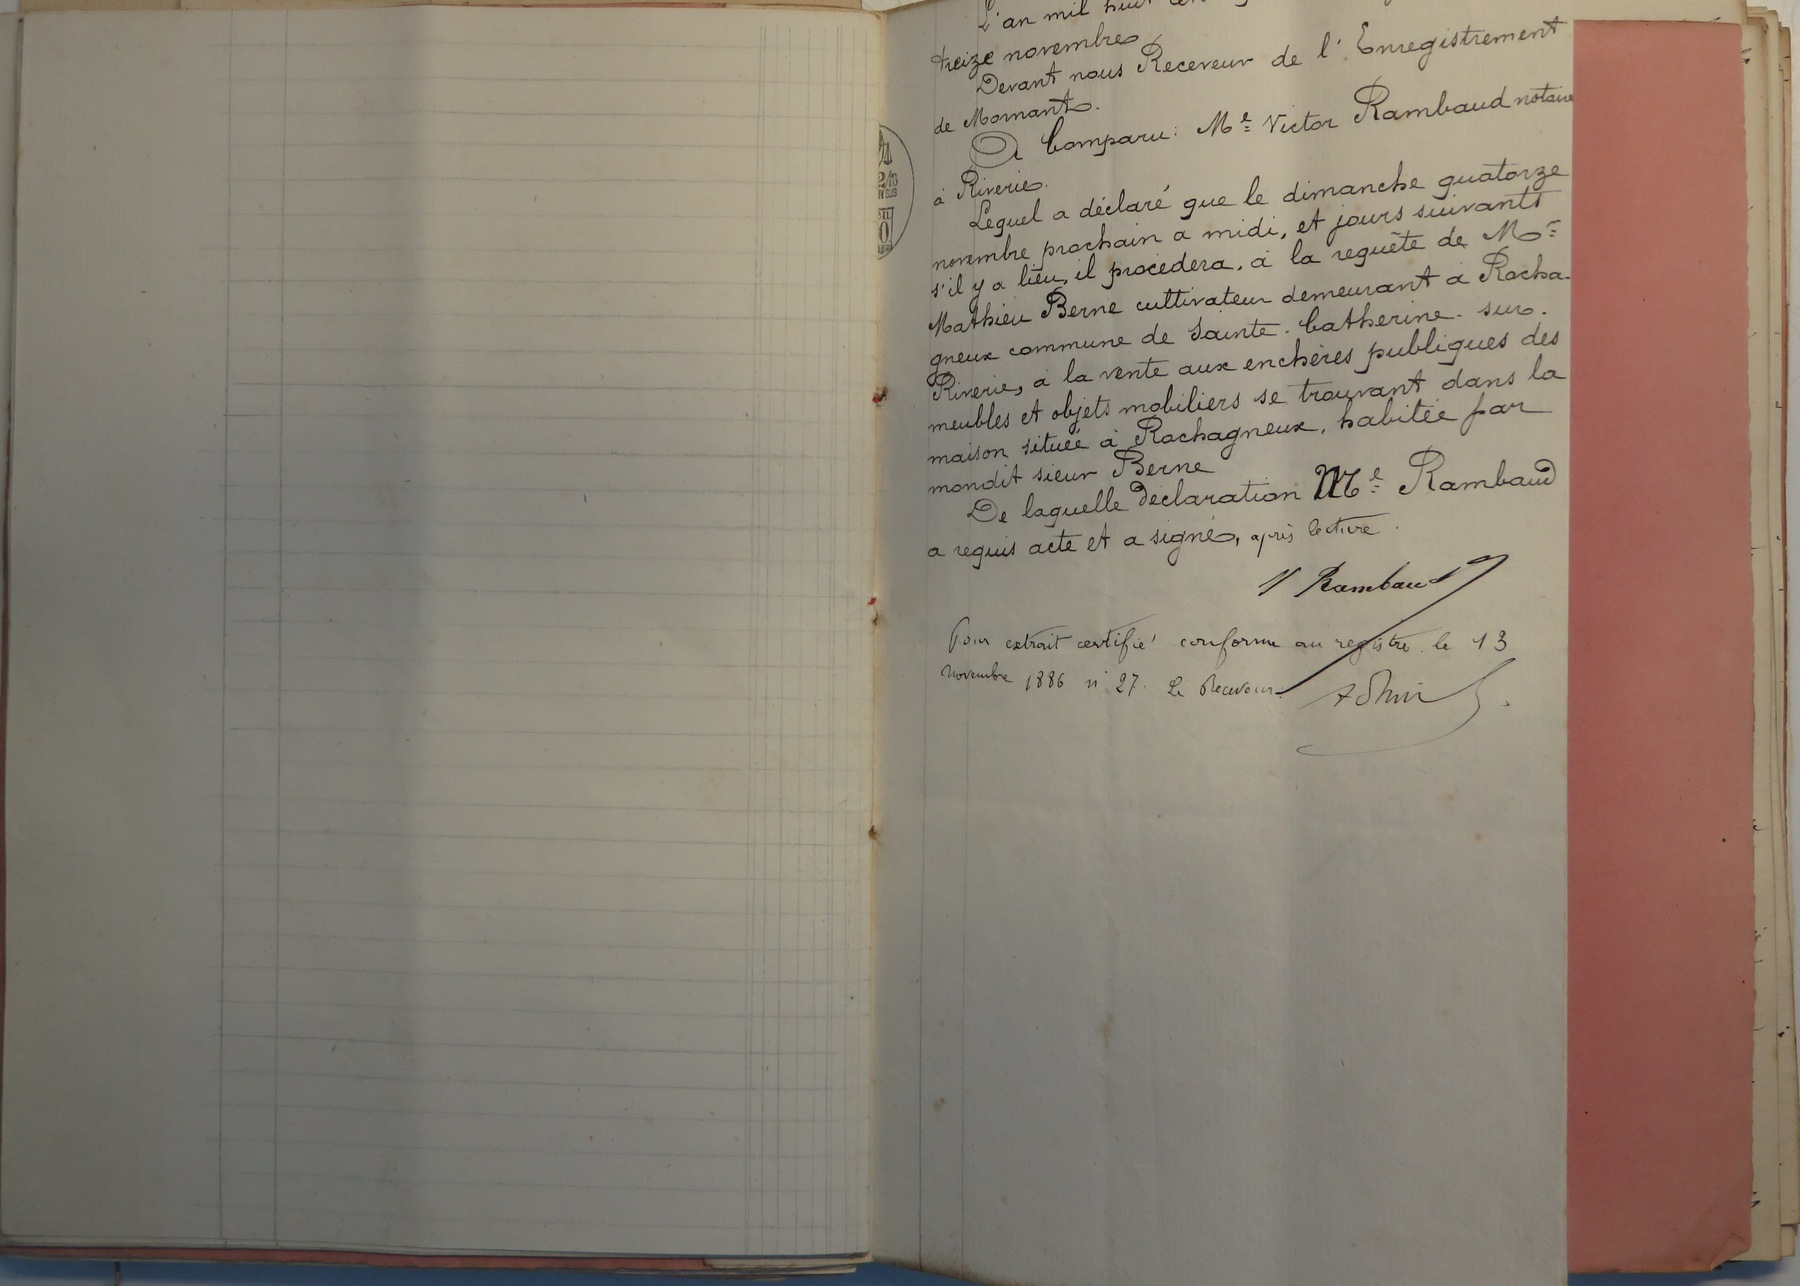 L'an mil huit cent
treize novembre
Devant nous Receveur de l'Enregistrement
de Mornant.
A Comparu: Me Victor Rambaud notaire
à Riverie.
Lequel a déclaré que le dimanche quatorze
novembre prochain a midi, et jours suivants
s'il y a lieu, il procèdera, à la requête de Mr
Mathieu Berne cultivateur demeurant à Rocha-
gneux commune de Sainte-Catherine-sur-
Riverie, à la vente aux enchères publiques des
meubles et objets mobiliers se trouvant dans la
maison située à Rochagneux, habitée par
mondit sieur Berne
De laquelle déclaration Me Rambaud
a requis acte et a signé, après lecture.
V Rambaud
Pour extrait certifié conforme au registre le 13
novembre 1886 n° 27. Le Receveur.